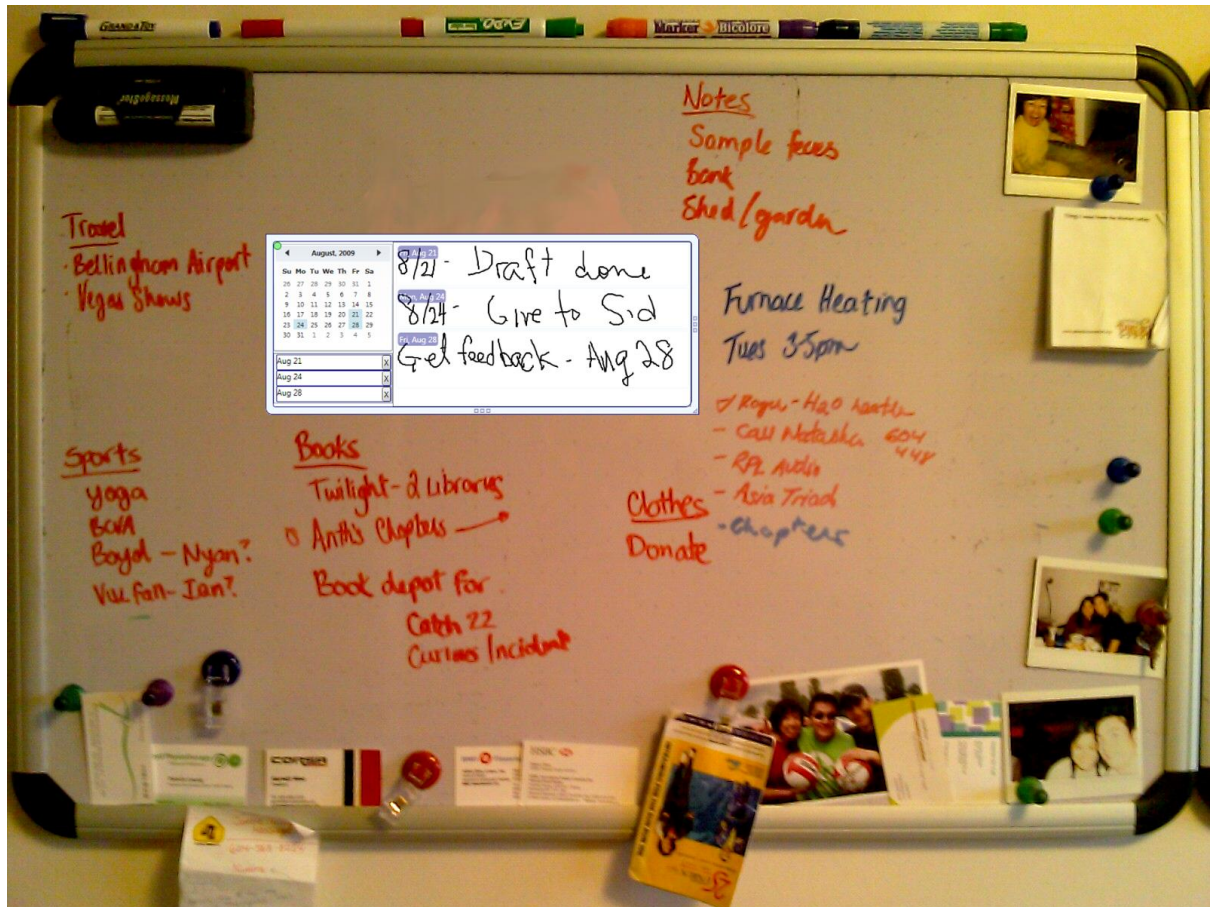 GRANDATOY
EXPO
Marker Bicolore
MessageStor
Notes
Sample feces
Bank
Shed/garden
Travel
· Bellingham Airport
· Vegas Shows
August, 2009
Su Mo Tu We Th Fr Sa
26 27 28 29 30 31 1
2 3 4 5 6 7 8
9 10 11 12 13 14 15
16 17 18 19 20 21 22
23 24 25 26 27 28 29
30 31 1 2 3 4 5
Aug 21 X
Aug 24 X
Aug 28 X
Fri, Aug 21
8/21 - Draft done
Mon, Aug 24
8/24 - Give to Sid
Fri, Aug 28
Get feedback - Aug 28
Furnace Heating
Tues 3-5pm
- Call Natasha 604
448
- RPL Audio
- Asia Triad
- Chapters
Sports
yoga
Boyd - Nyan?
Ian?
Books
Twilight - 2 Libraries
Chapters
Book depot for
Catch 22
Curious Incident
Clothes
Donate
HSBC